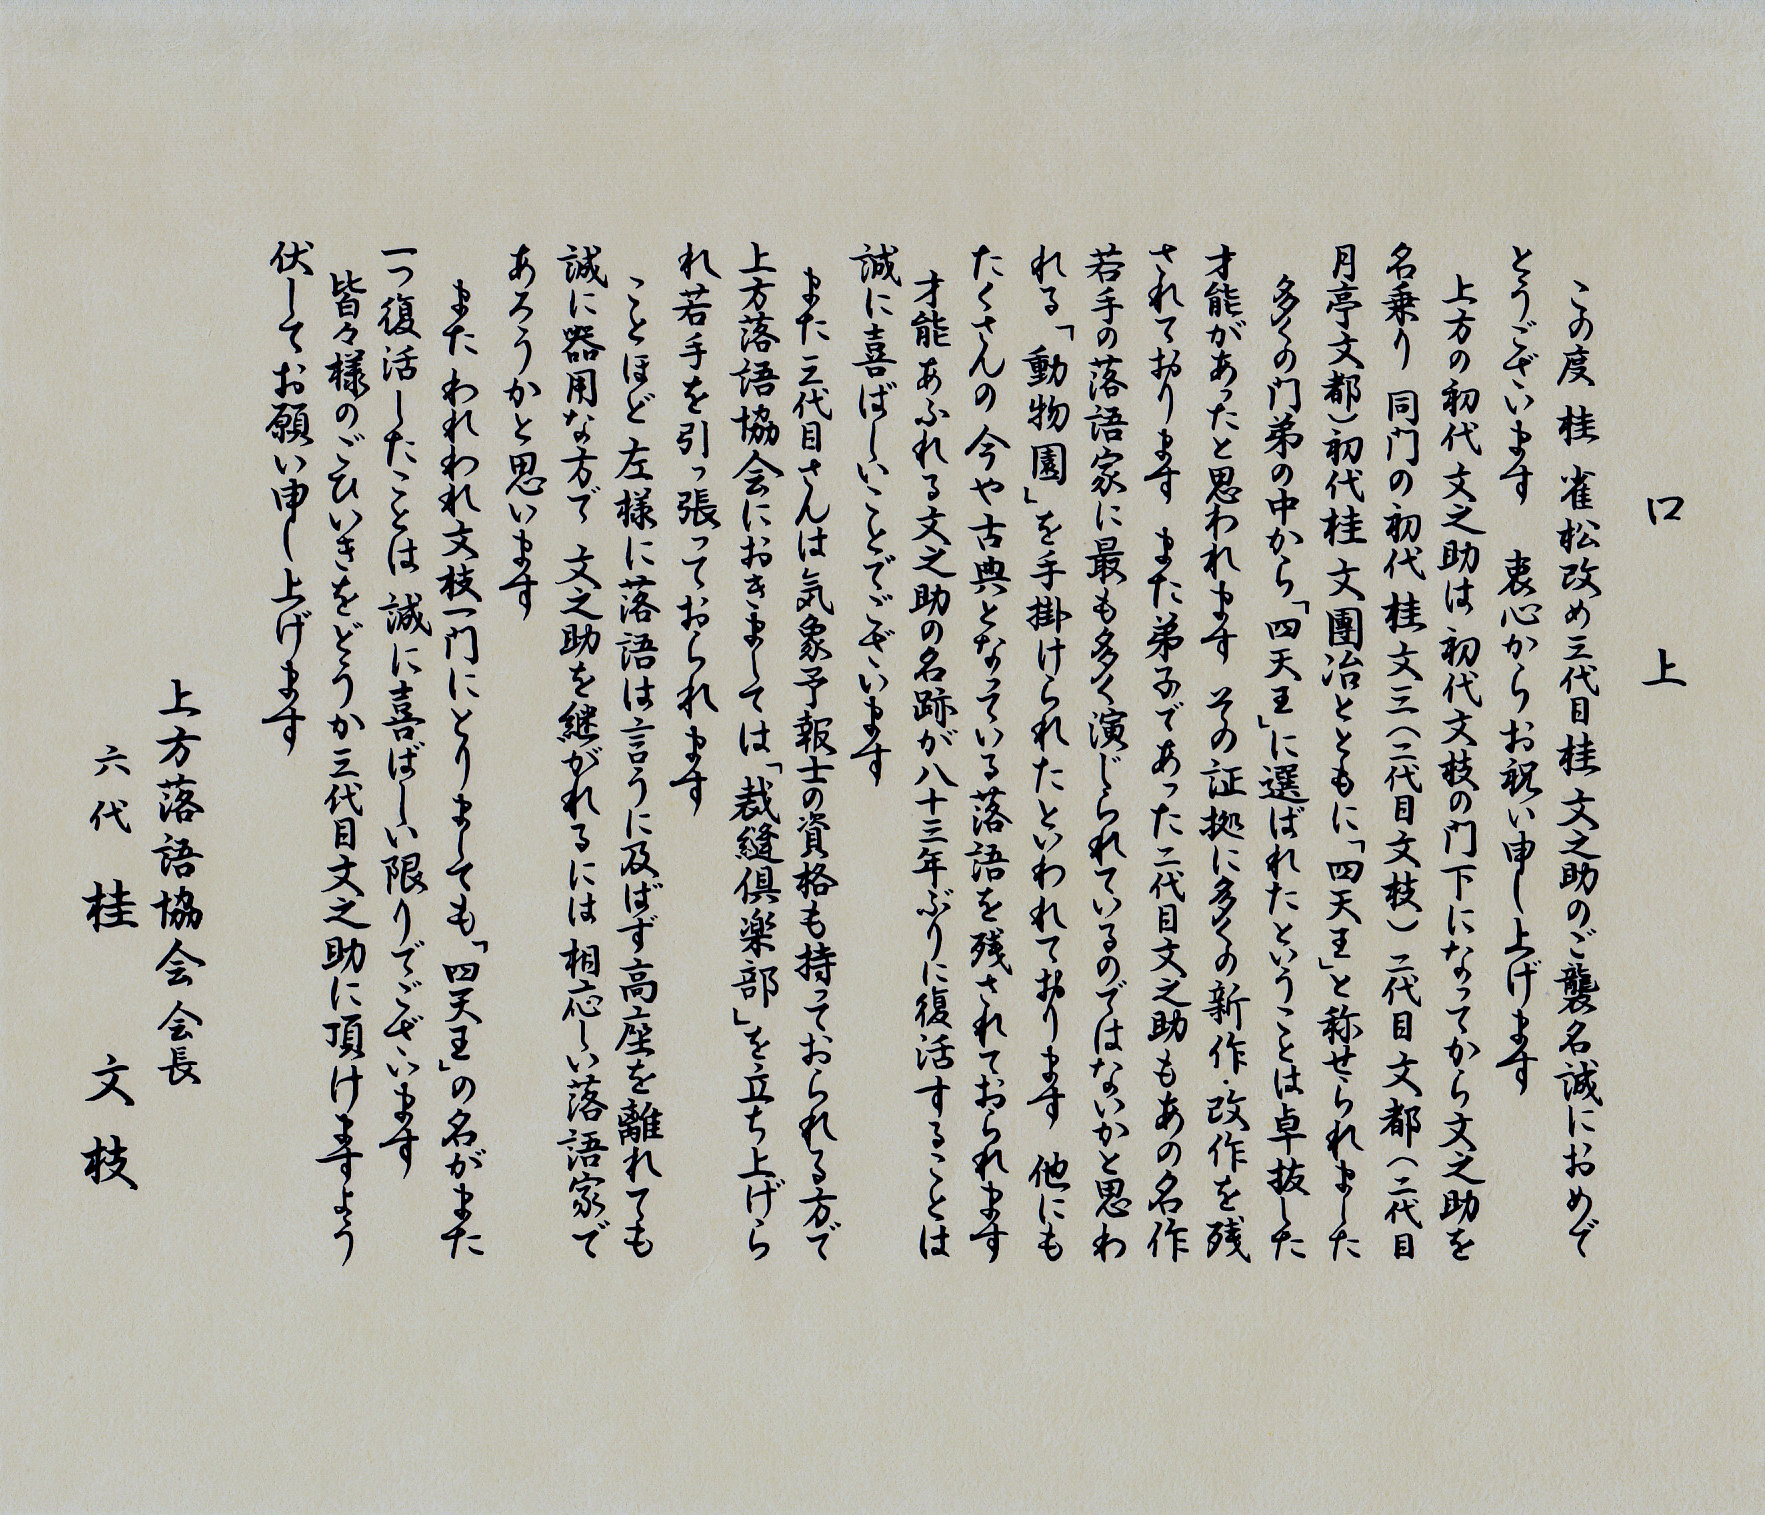 口上
この度 桂 雀松改め三代目桂 文之助のご襲名誠におめで
とうございます 衷心からお祝い申し上げます
上方の初代 文之助は初代文枝の門下になってから文之助を
名乗り 同門の初代 桂 文三(二代目文枝) 二代目 文都(二代目
月亭文都)初代桂 文團治とともに「四天王」と称せられました
多くの門弟の中から「四天王」に選ばれたということは卓抜した
才能があったと思われます その証拠に多くの新作・改作を残
されております また弟子であった二代目文之助もあの名作
若手の落語家に最も多く演じられているのではないかと思わ
れる「動物園」を手掛けられたといわれております 他にも
たくさんの 今や古典となっている落語を残されておられます
才能あふれる文之助の名跡が八十三年ぶりに復活することは
誠に喜ばしいことでございます
また三代目さんは気象予報士の資格も持っておられる方で
上方落語協会におきましては「裁縫倶楽部」を立ち上げら
れ若手を引っ張っておられます
ことほど左様に落語は言うに及ばず高座を離れても
誠に器用な方で 文之助を継がれるには相応しい落語家で
あろうかと思います
また われわれ文枝一門にとりましても「四天王」の名がまた
一つ復活したことは 誠に喜ばしい限りでございます
皆々様のごひいきをどうか三代目文之助に頂けますよう
伏してお願い申し上げます
上方落語協会会長
六代 桂 文枝